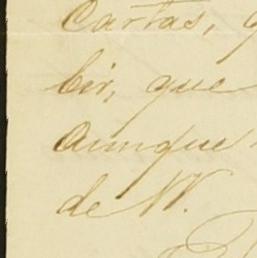 Cartas,
bir, que
Aunque
de W.